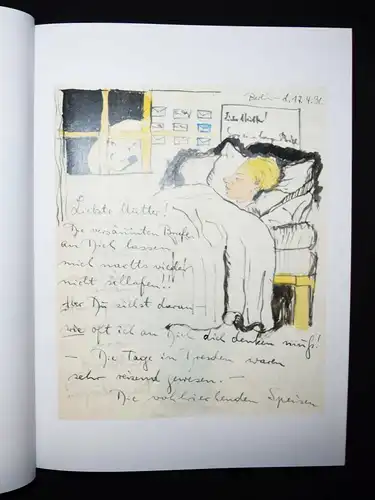 Berlin d. 17.4.31
Liebe Mutter!
Liebste Mutter!
Die versäumten Briefe
an Dich lassen
mich nachts wieder
nicht schlafen!!
Aber Du siehst daran –
wie oft ich an Dich denken muß!
– Die Tage in Dresden waren
sehr reizend gewesen. –
Die wohlriechenden Speisen